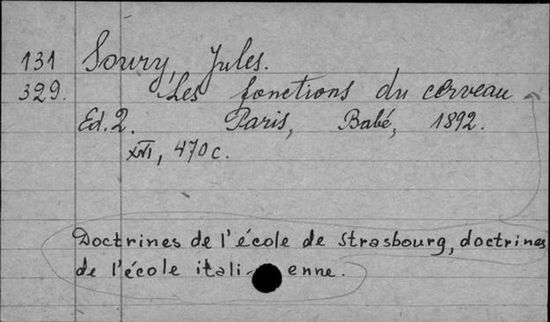 131 Soury, Jules.
329. Les fonctions du cerveau
Ed. 2. Paris, Babé, 1892.
XVI, 470 c.
Doctrines de l'école de Strasbourg, doctrines
de l'école itali-enne.